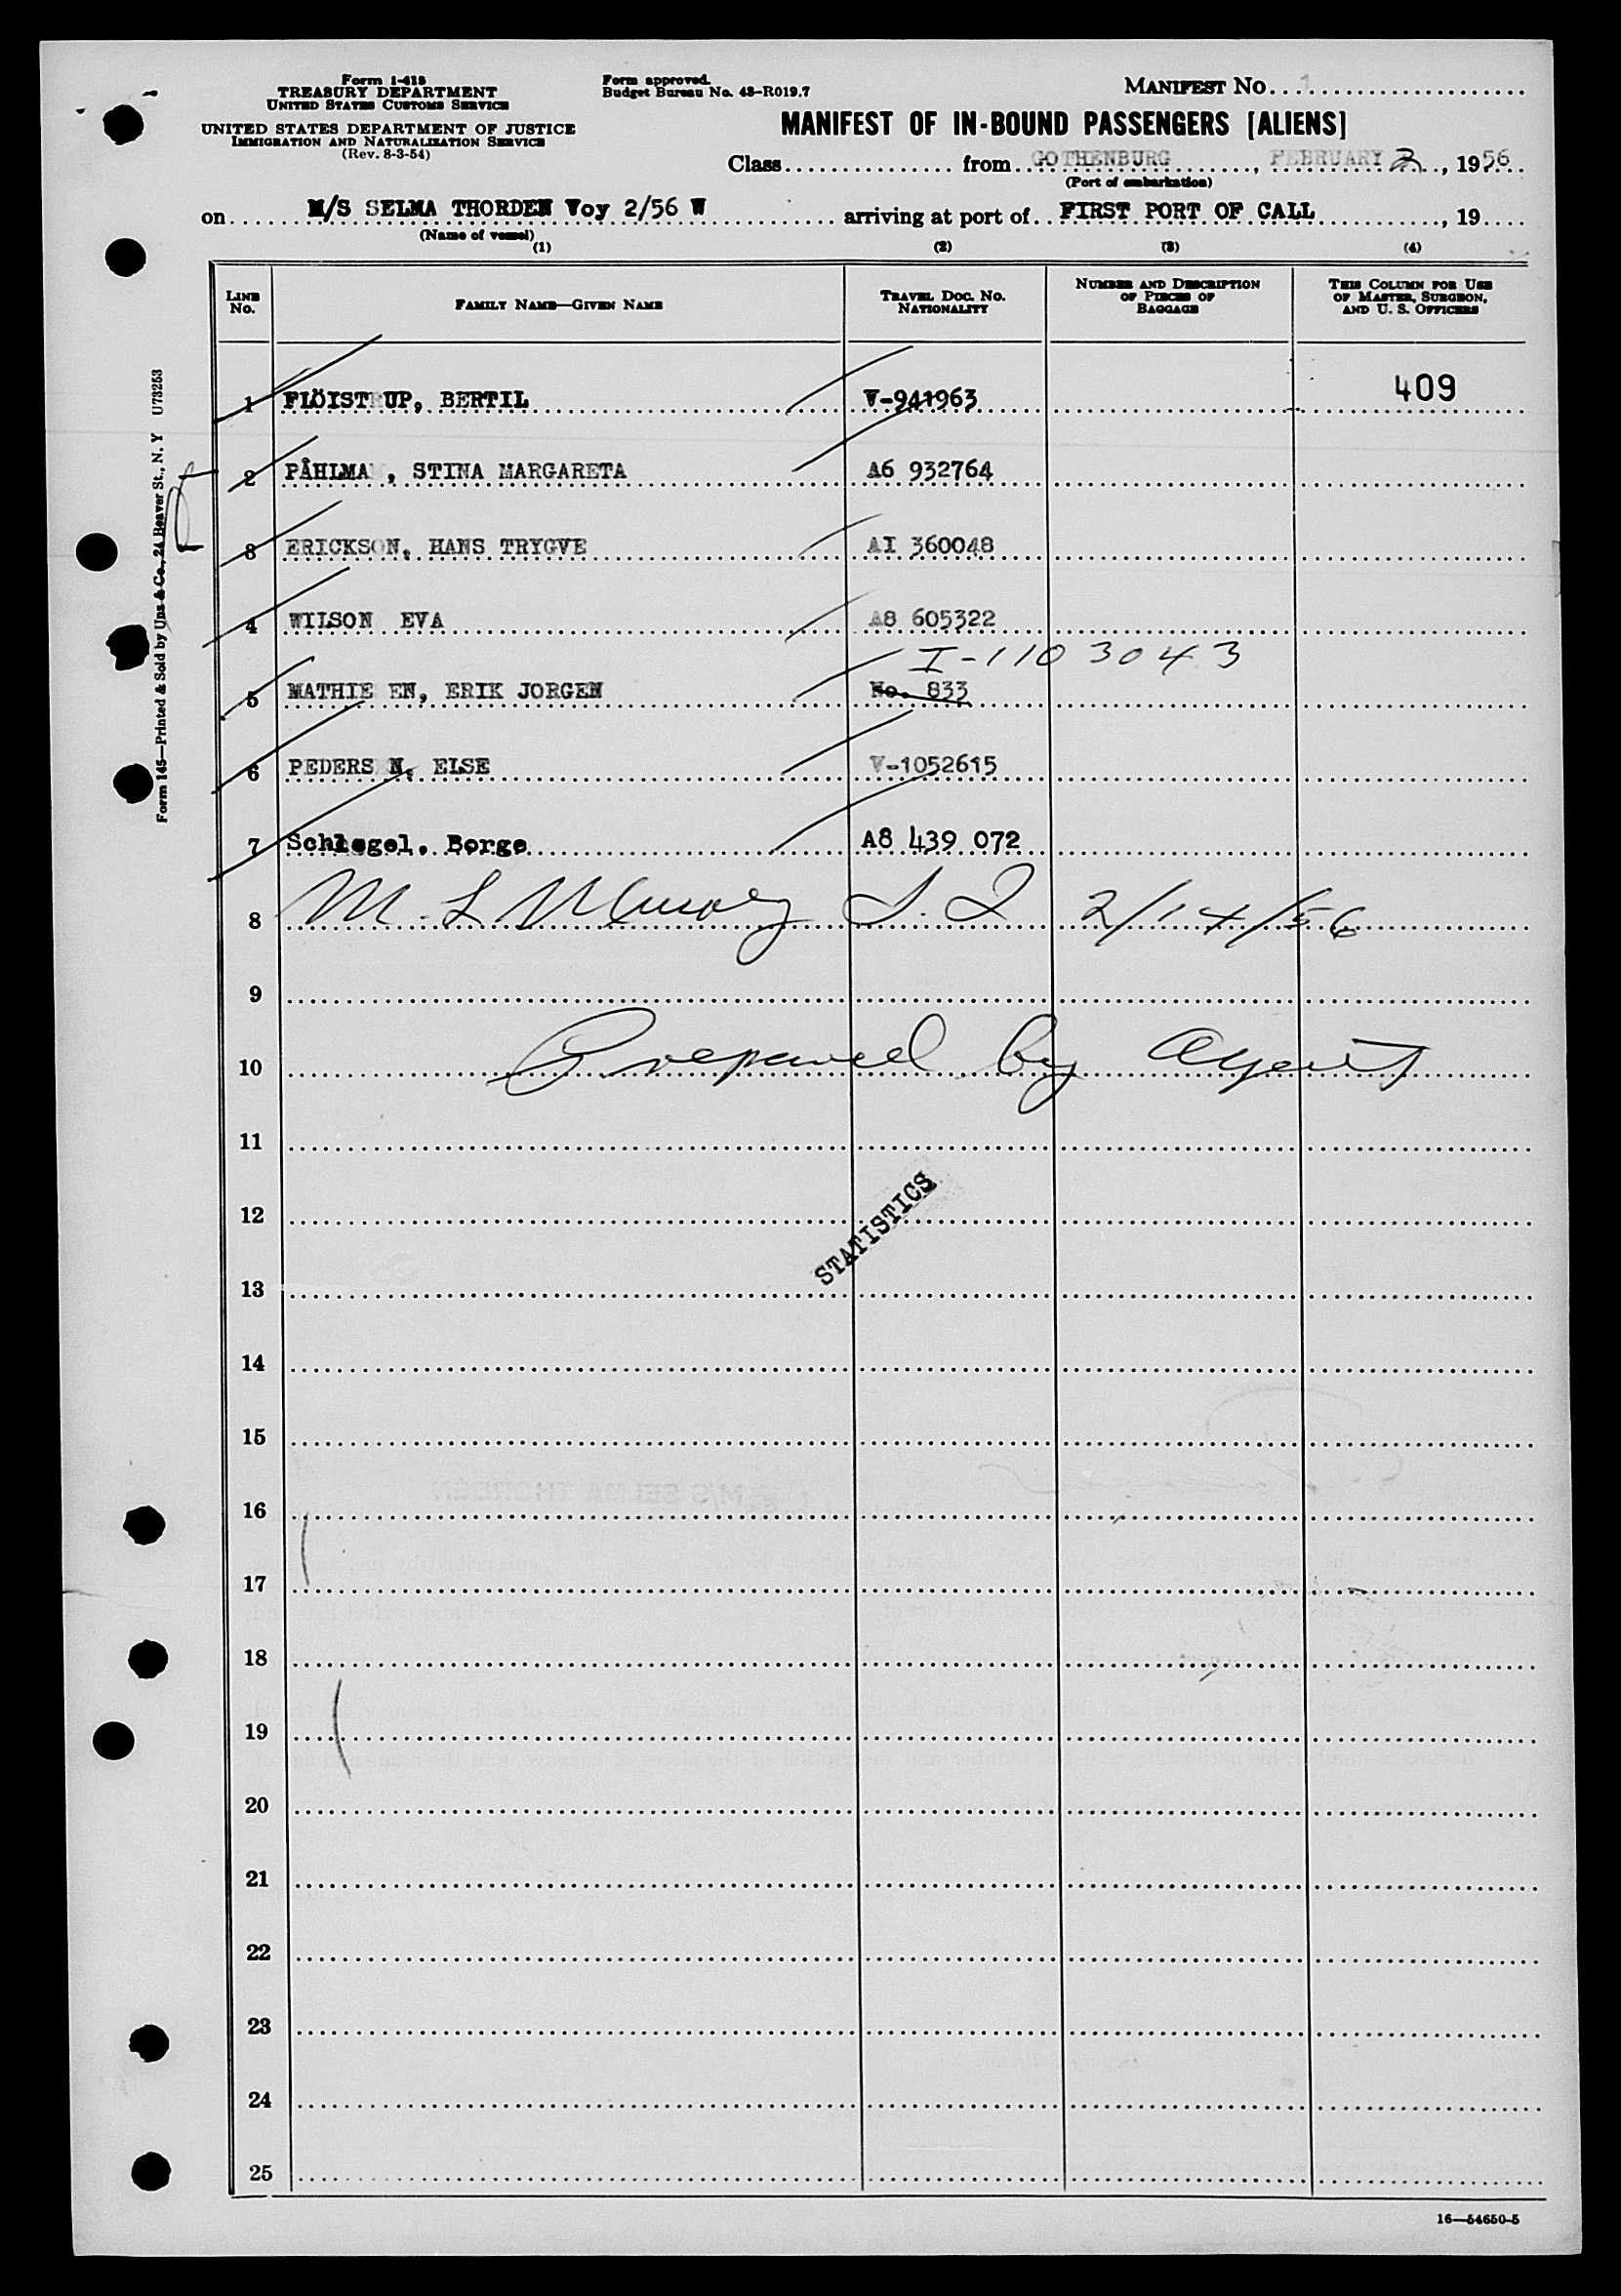 Form I-418
TREASURY DEPARTMENT
UNITED STATES CUSTOMS SERVICE
UNITED STATES DEPARTMENT OF JUSTICE
IMMIGRATION AND NATURALIZATION SERVICE
(Rev. 8-3-54)
Form approved.
Budget Bureau No. 43-R019.7
MANIFEST NO. 1
MANIFEST OF IN-BOUND PASSENGERS [ALIENS]
Class from GOTHENBURG, FEBRUARY 2, 1956
(Port of embarkation)
on M/S SELMA THORDEN Voy 2/56 W arriving at port of FIRST PORT OF CALL, 19
(Name of vessel)
(1) (2) (3) (4)
LINE NO. FAMILY NAME—GIVEN NAME TRAVEL DOC. NO. NATIONALITY NUMBER AND DESCRIPTION OF PIECES OF BAGGAGE THIS COLUMN FOR USE OF MASTER, SURGEON, AND U. S. OFFICERS
409
1 FLÖIST UP, BERTIL V-941963
2 PÅHLMA , STINA MARGARETA A6 932764
3 ERICKSON, HANS TRYGVE AI 360048
4 WILSON EVA A8 605322
I-1103043
5 MATHIE EN, ERIK JORGEN No. 833
6 PEDERS N, ELSE V-1052615
7 Schlegel, Borge A8 439 072
8 M. L 2/14/56
9
10 Prepared by Agent
11
12
STATISTICS
13
14
15
16
17
18
19
20
21
22
23
24
25
16—54650-5
Form 145—Printed & Sold by Unz & Co., 24 Beaver St., N. Y U73253